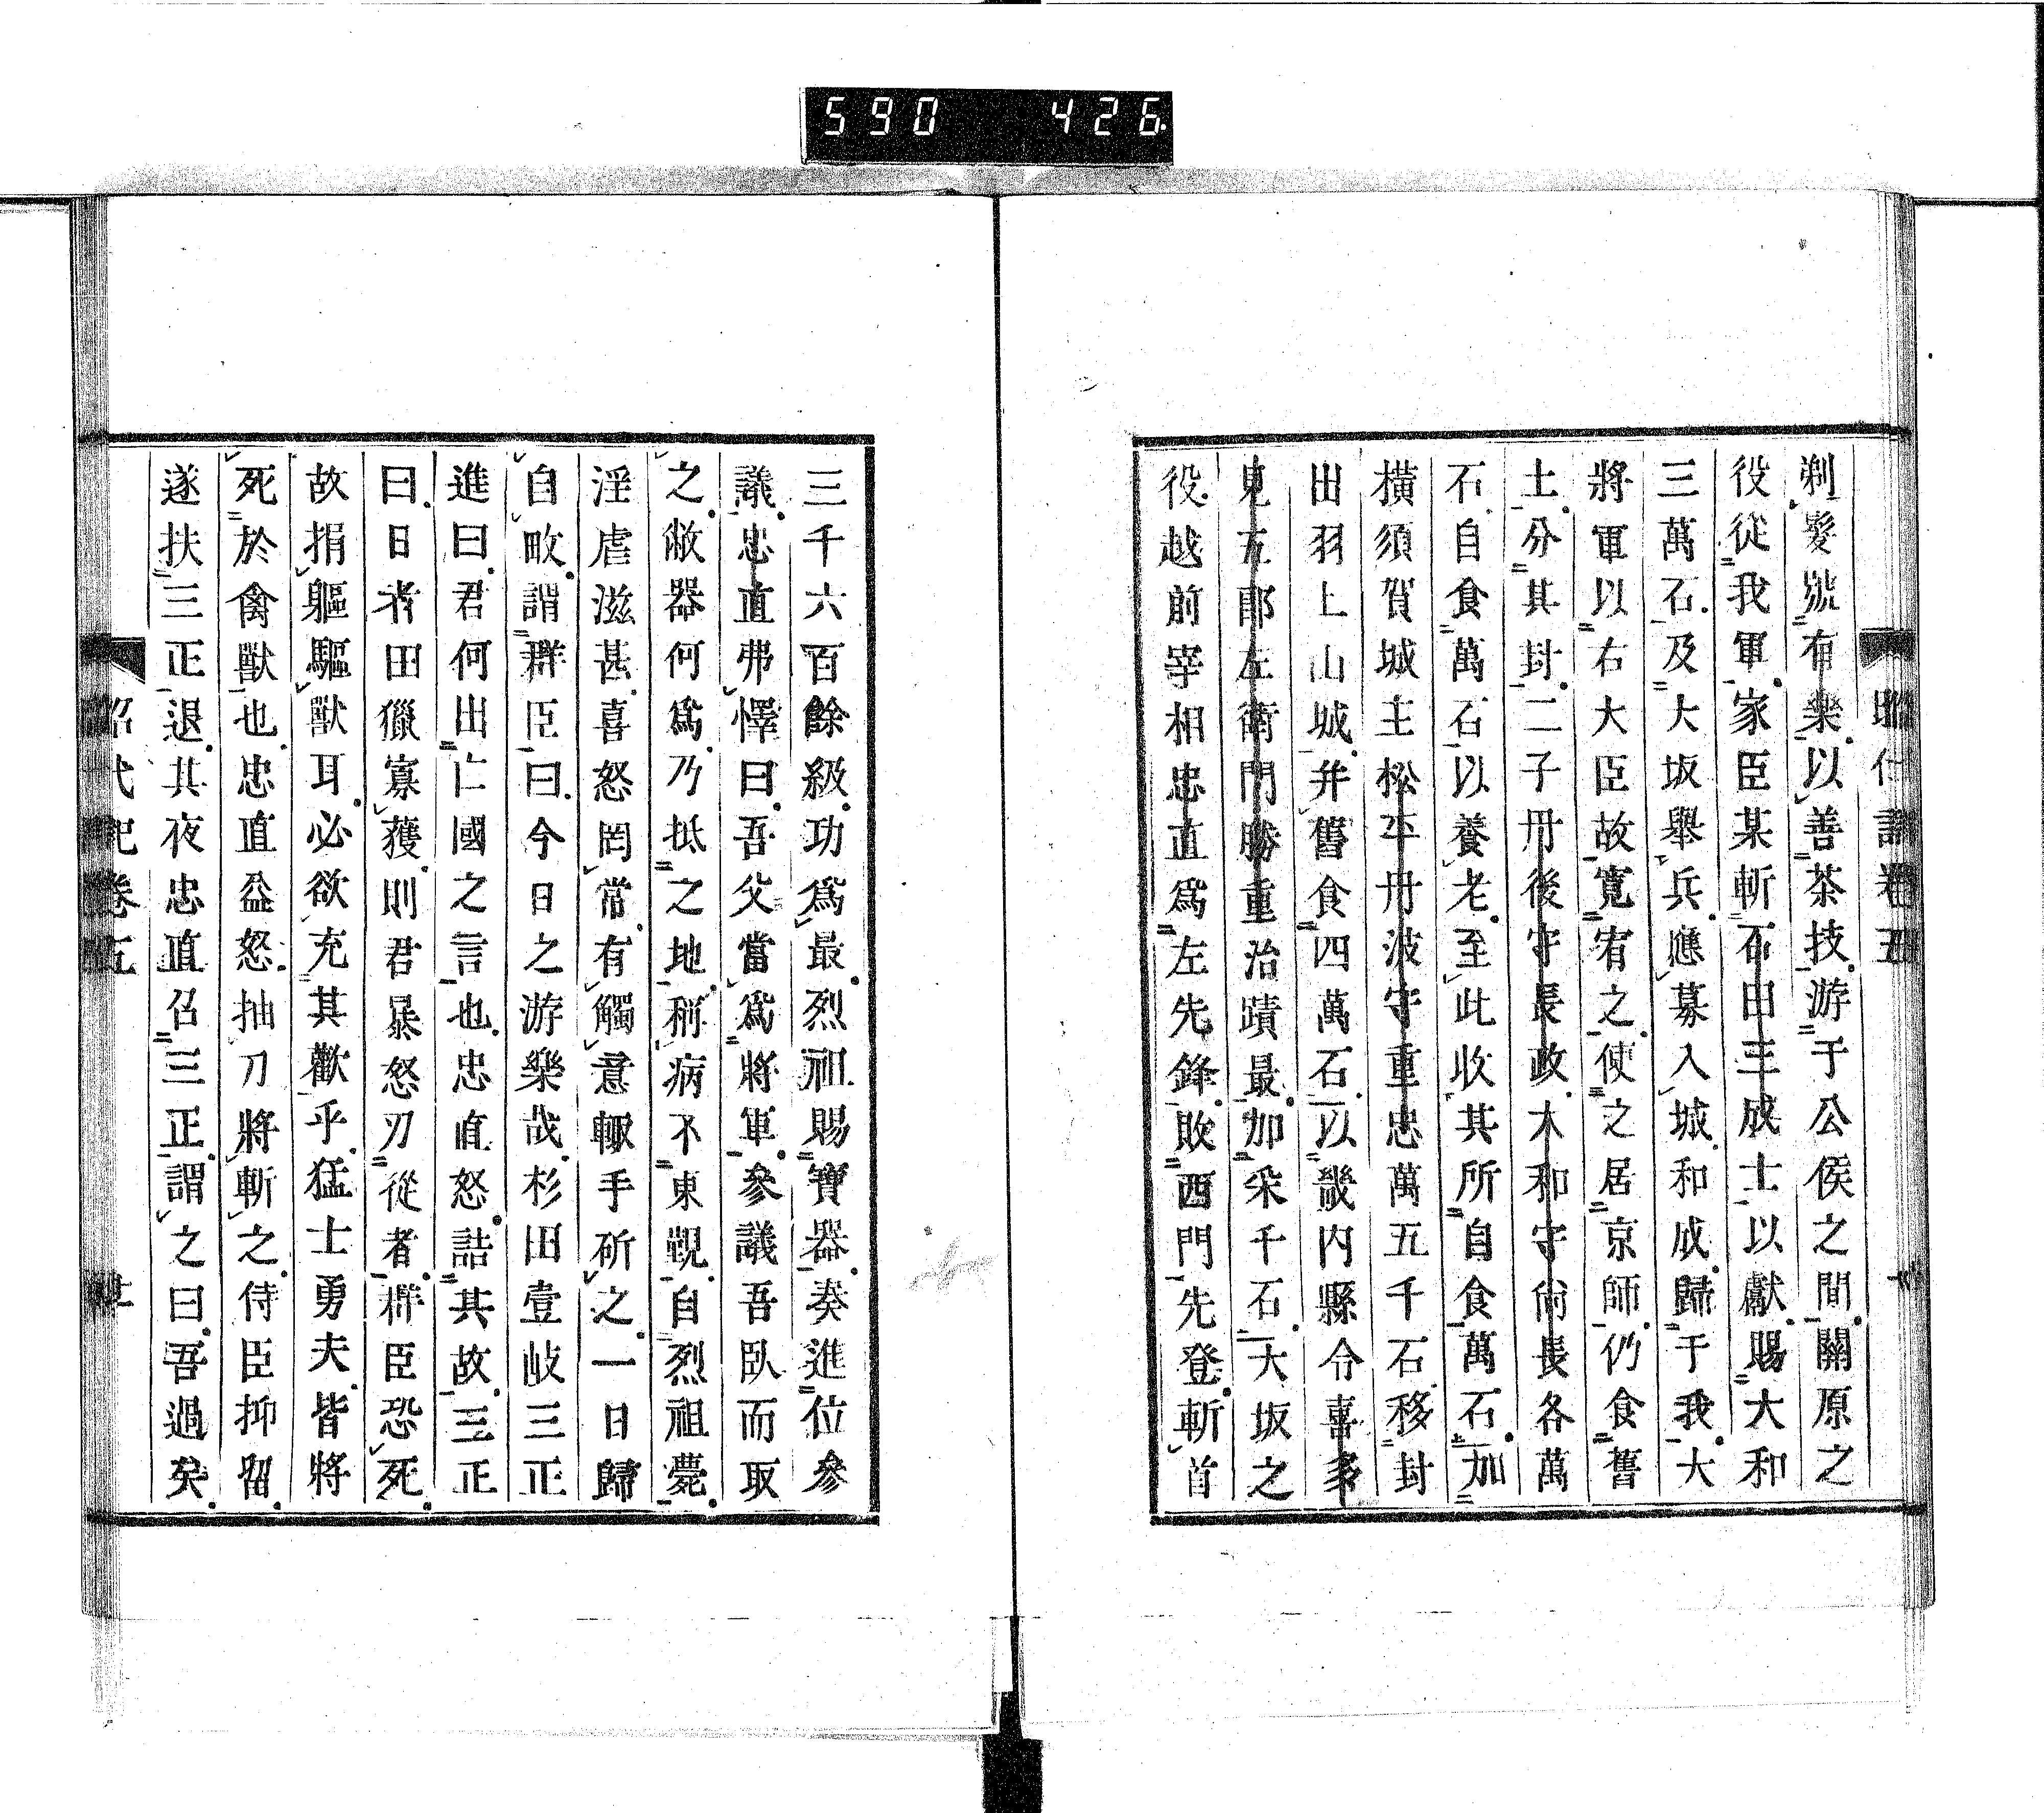 590 426
剃髮號有樂以善茶技游于公侯之間關原之
役從我軍家臣某斬石田三成士以獻賜大和
三萬石及大坂舉兵應募入城和成歸于我大
將軍以右大臣故寬宥之使之居京師仍食舊
土分其封二子丹後守長政大和守尚長各萬
石自食萬石以養老至此收其所自食萬石加
橫須賀城主松平丹波守重忠萬五千石移封
出羽上山城并舊食四萬石以畿內縣令喜多
見五郎左衛門勝重治蹟最加釆千石大坂之
役越前宰相忠直為左先鋒敗西門先登斬首
三千六百餘級功為最烈祖賜寶器奏進位參
議忠直弗懌曰吾父當為將軍參議吾臥而取
之敝器何為乃抵之地稱病不東覲自烈祖薨
淫虐滋甚喜怒罔常有觸意輙手斫之一日歸
自畋謂群臣曰今日之游樂哉杉田壹岐三正
進曰君何出亡國之言也忠直怒詰其故三正
曰日者田獵寡獲則君暴怒刃從者群臣恐死
故捐軀驅獸耳必欲充其歡乎猛士勇夫皆將
死於禽獸也忠直益怒抽刀將斬之侍臣抑留
遂扶三正退其夜忠直召三正謂之曰吾過矣
昭代記卷五